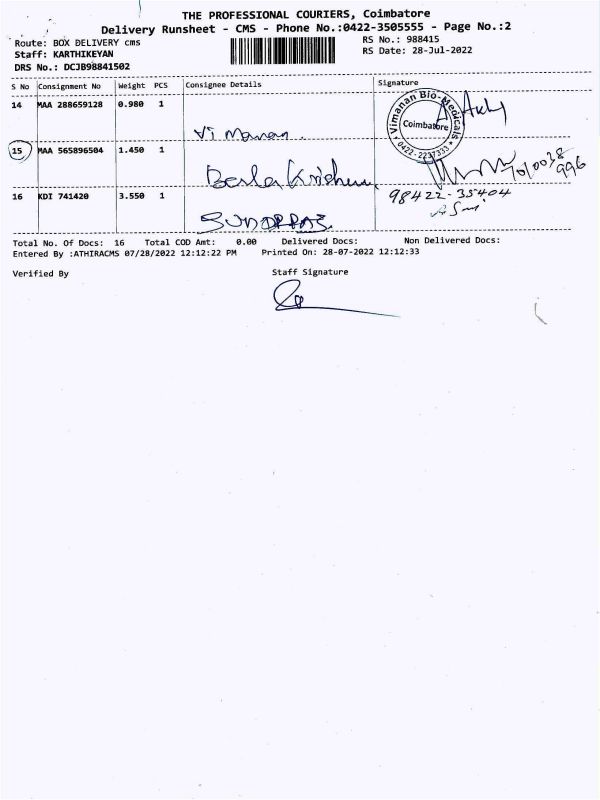 THE PROFESSIONAL COURIERS, Coimbatore
Delivery Runsheet - CMS - Phone No.:0422-3505555 - Page No.:2
Route: BOX DELIVERY cms RS No.: 988415
Staff: KARTHIKEYAN RS Date: 28-Jul-2022
DRS No.: DCJB98841502
S No Consignment No Weight PCS Consignee Details Signature
14 MAA 288659128 0.980 1 Vimanan
Vimanan Bio-Medicals
Coimbatore
0422-2237333
15 MAA 565896504 1.450 1
16 KDI 741420 3.550 1 98422-35404
Total No. Of Docs: 16 Total COD Amt: 0.00 Delivered Docs: Non Delivered Docs:
Entered By :ATHIRACMS 07/28/2022 12:12:22 PM Printed On: 28-07-2022 12:12:33
Verified By Staff Signature